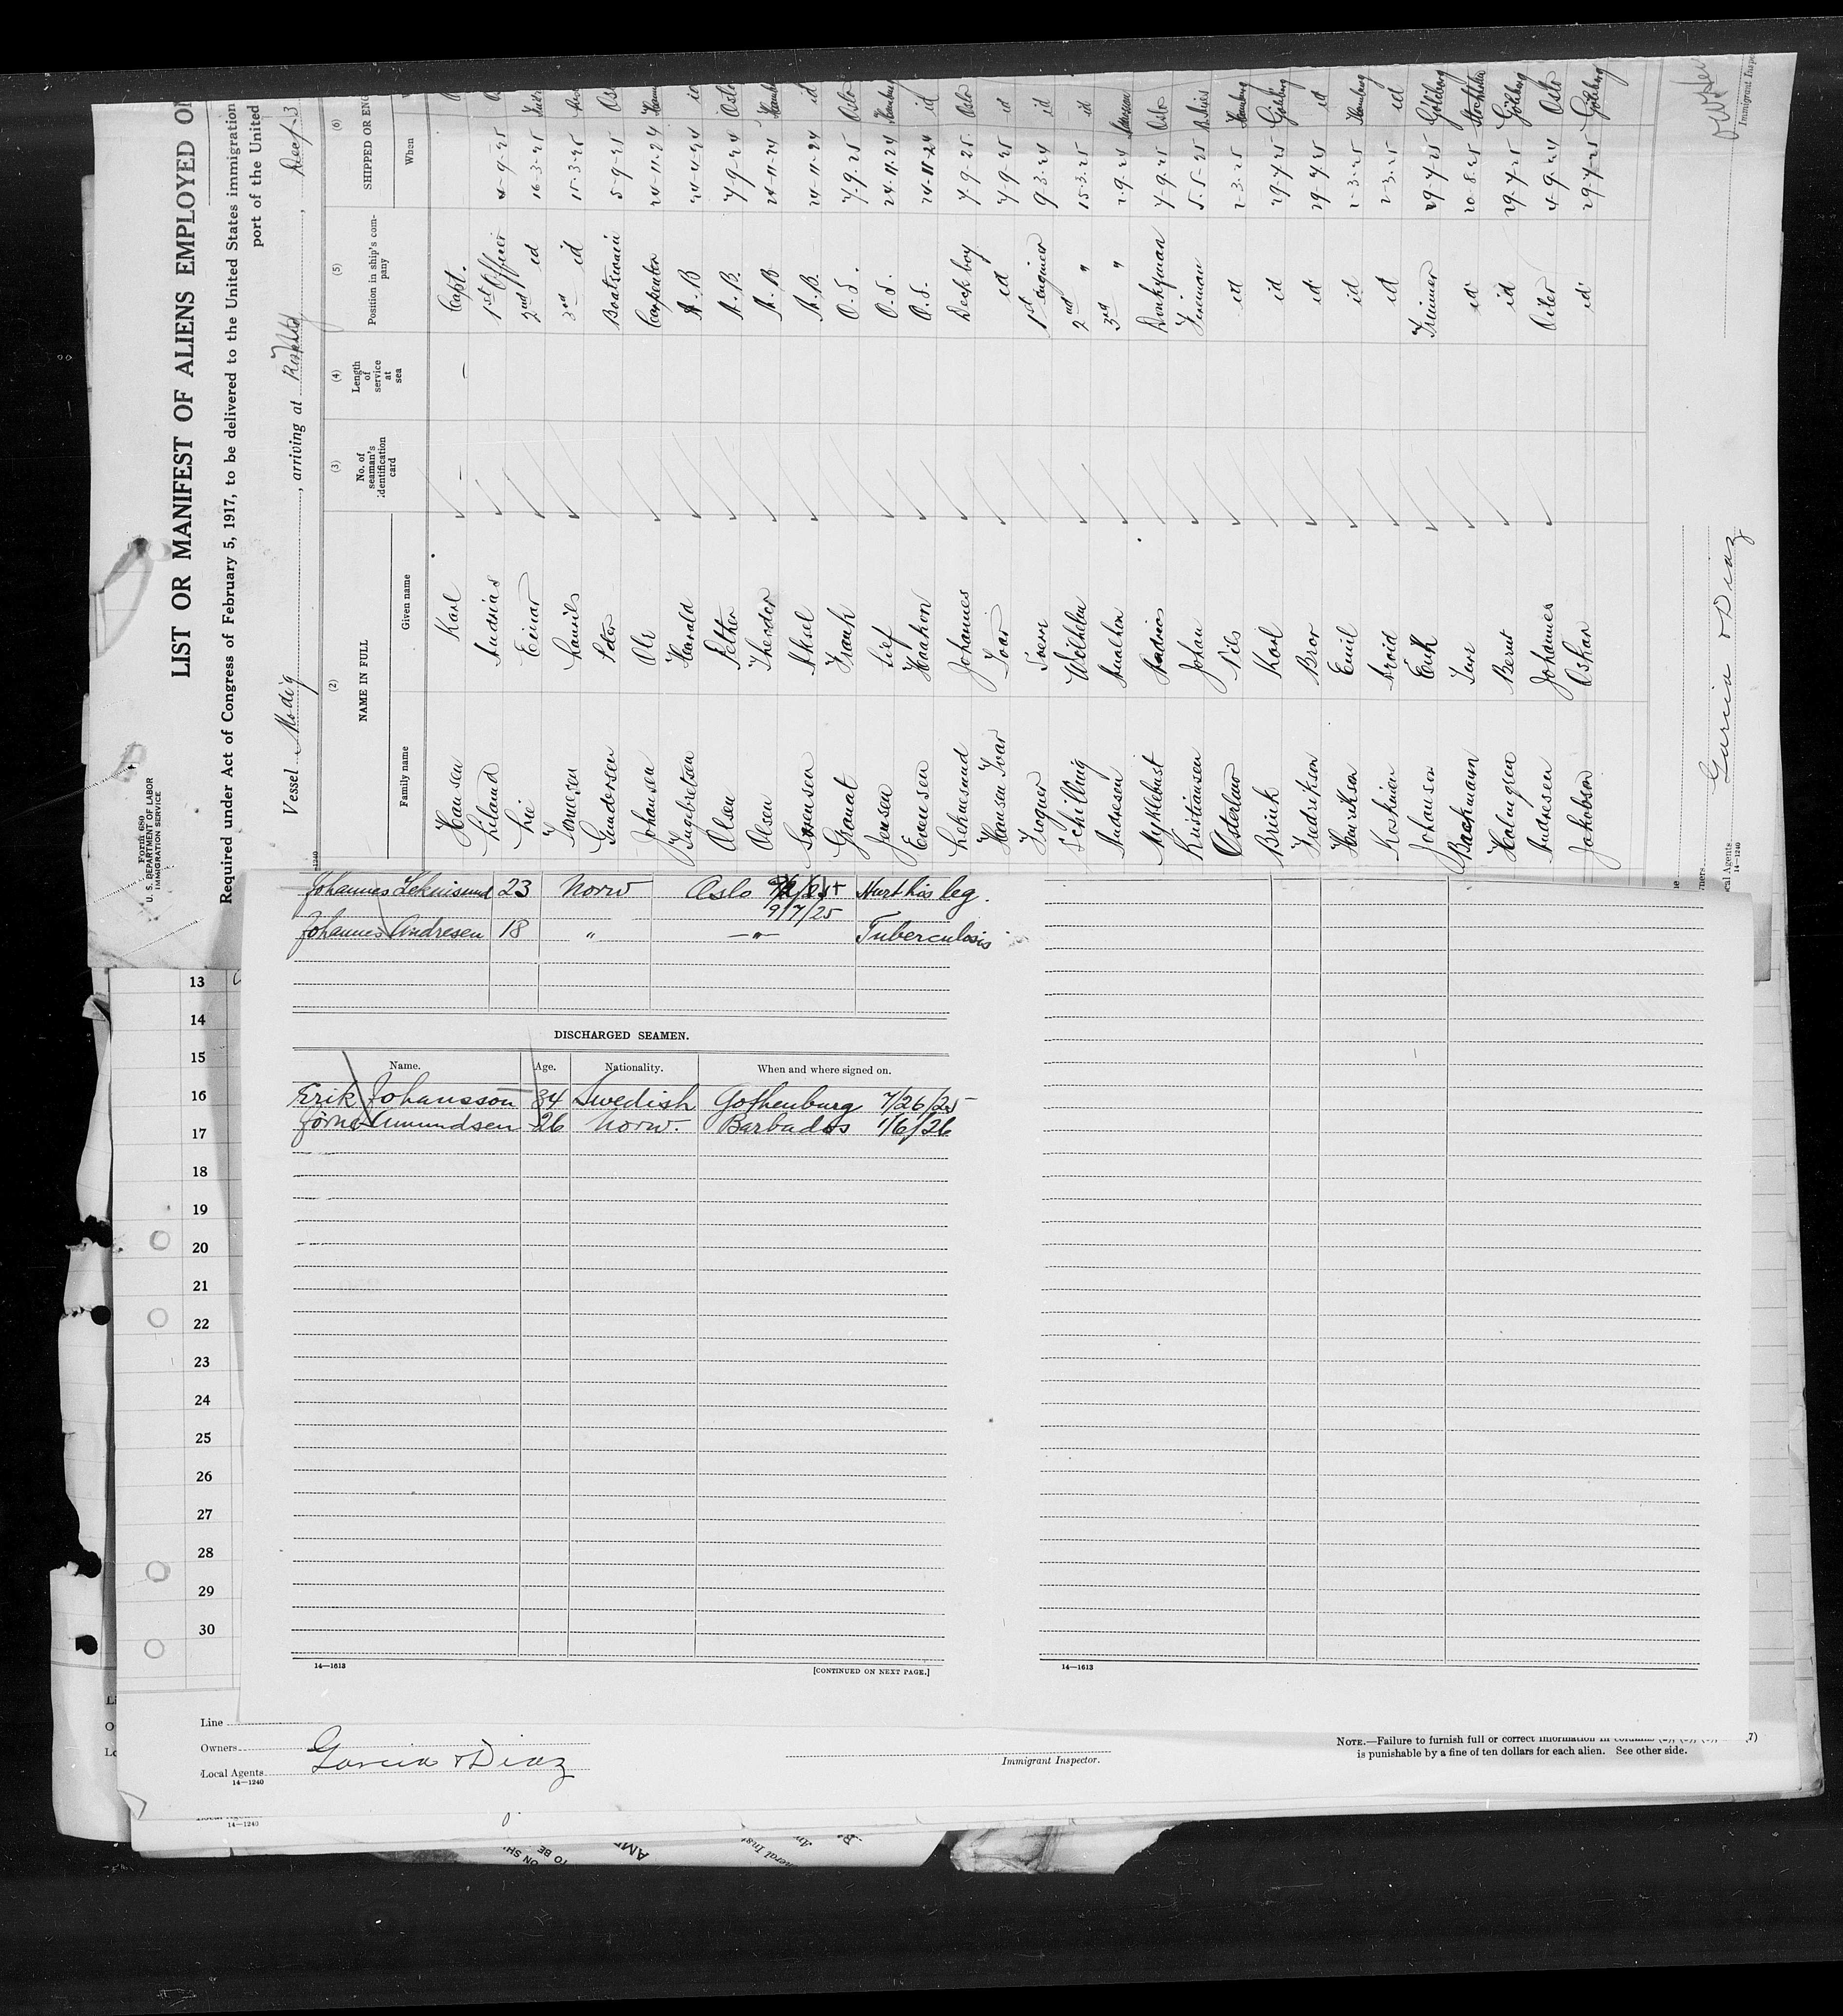 Form 680
U. S. DEPARTMENT OF LABOR
IMMIGRATION SERVICE
LIST OR MANIFEST OF ALIENS EMPLOYED ON
Required under Act of Congress of February 5, 1917, to be delivered to the United States immigration
port of the United
Vessel Modig, arriving at
(2) (3) (4) (5) (6)
NAME IN FULL No. of seaman's identification card Length of service at sea Position in ship's company SHIPPED OR ENG
Family name Given name When
Hansen Karl — — Capt.
Liland Andreas 1st Officer 4-9-25
Lie Einar 2nd id 16-3-25
Laurits 3rd id 15-3-25
Gundersen Peter Boatswain 5-9-25
Johansen Ole Carpenter 24-11-24
Ingebretsen Harald A.B 24-4-24 id
Olsen Petter A.B. 7-9-24 Oslo
Olsen Theodor A.B 24-11-24 Hamburg
Sørensen Aksel A.B. 24-11-24 id
Granat Frank O.S. 7-9-25 Oslo
Jensen Lief O.S. 24-11-24 Hamburg
Evensen Haakon O.S. 24-11-24 id
Leknesund Johannes Deck boy 7-9-25 Oslo
Hansen Ivar Ivar id 7-9-25 id
1st engineer 9-3-24 id
Schilling Wilhelm 2nd " 15-3-25 id
Andresen 3rd " 2-9-24
Myklebust Andreas Donkyman 7-9-25 Oslo
Kristiansen Johan Fireman 5-5-25 B. Aires
Osterlav Nils id 2-3-25 Hamburg
Brink Karl id 29-7-25 Göteborg
Fredrikson Bror id 29-7-25 id
Henrikson Emil id 2-3-25 Hamburg
Koskinen id 2-3-25 id
Johanson Erik Trimmer 29-7-25 Göteborg
Backmann id 20-8-25 Stockholm
Holmgren Bernt id 29-7-25 Göteborg
Andresen Johannes Oiler 4-9-24 Oslo
Jakobson Oskar id 29-7-25 Göteborg
Garcia & Diaz
Local Agents
14—1240
Immigrant Inspe
Johannes Leknisund 23 Norw Oslo Hurt his leg.
9/7/25
Johannes Andresen 18 " —"— Tuberculosis
DISCHARGED SEAMEN.
Name. Age. Nationality. When and where signed on.
Erik Johansson 34 Swedish Gothenburg 7/26/25
Amundsen 26 Norw. Barbados 1/6/26
14—1613 [CONTINUED ON NEXT PAGE.]
14—1613
13
14
15
16
17
18
19
20
21
22
23
24
25
26
27
28
29
30
Line
Owners
Local Agents Garcia & Diaz
14—1240
Immigrant Inspector.
NOTE.—Failure to furnish full or correct information in columns
is punishable by a fine of ten dollars for each alien. See other side.
14—1240